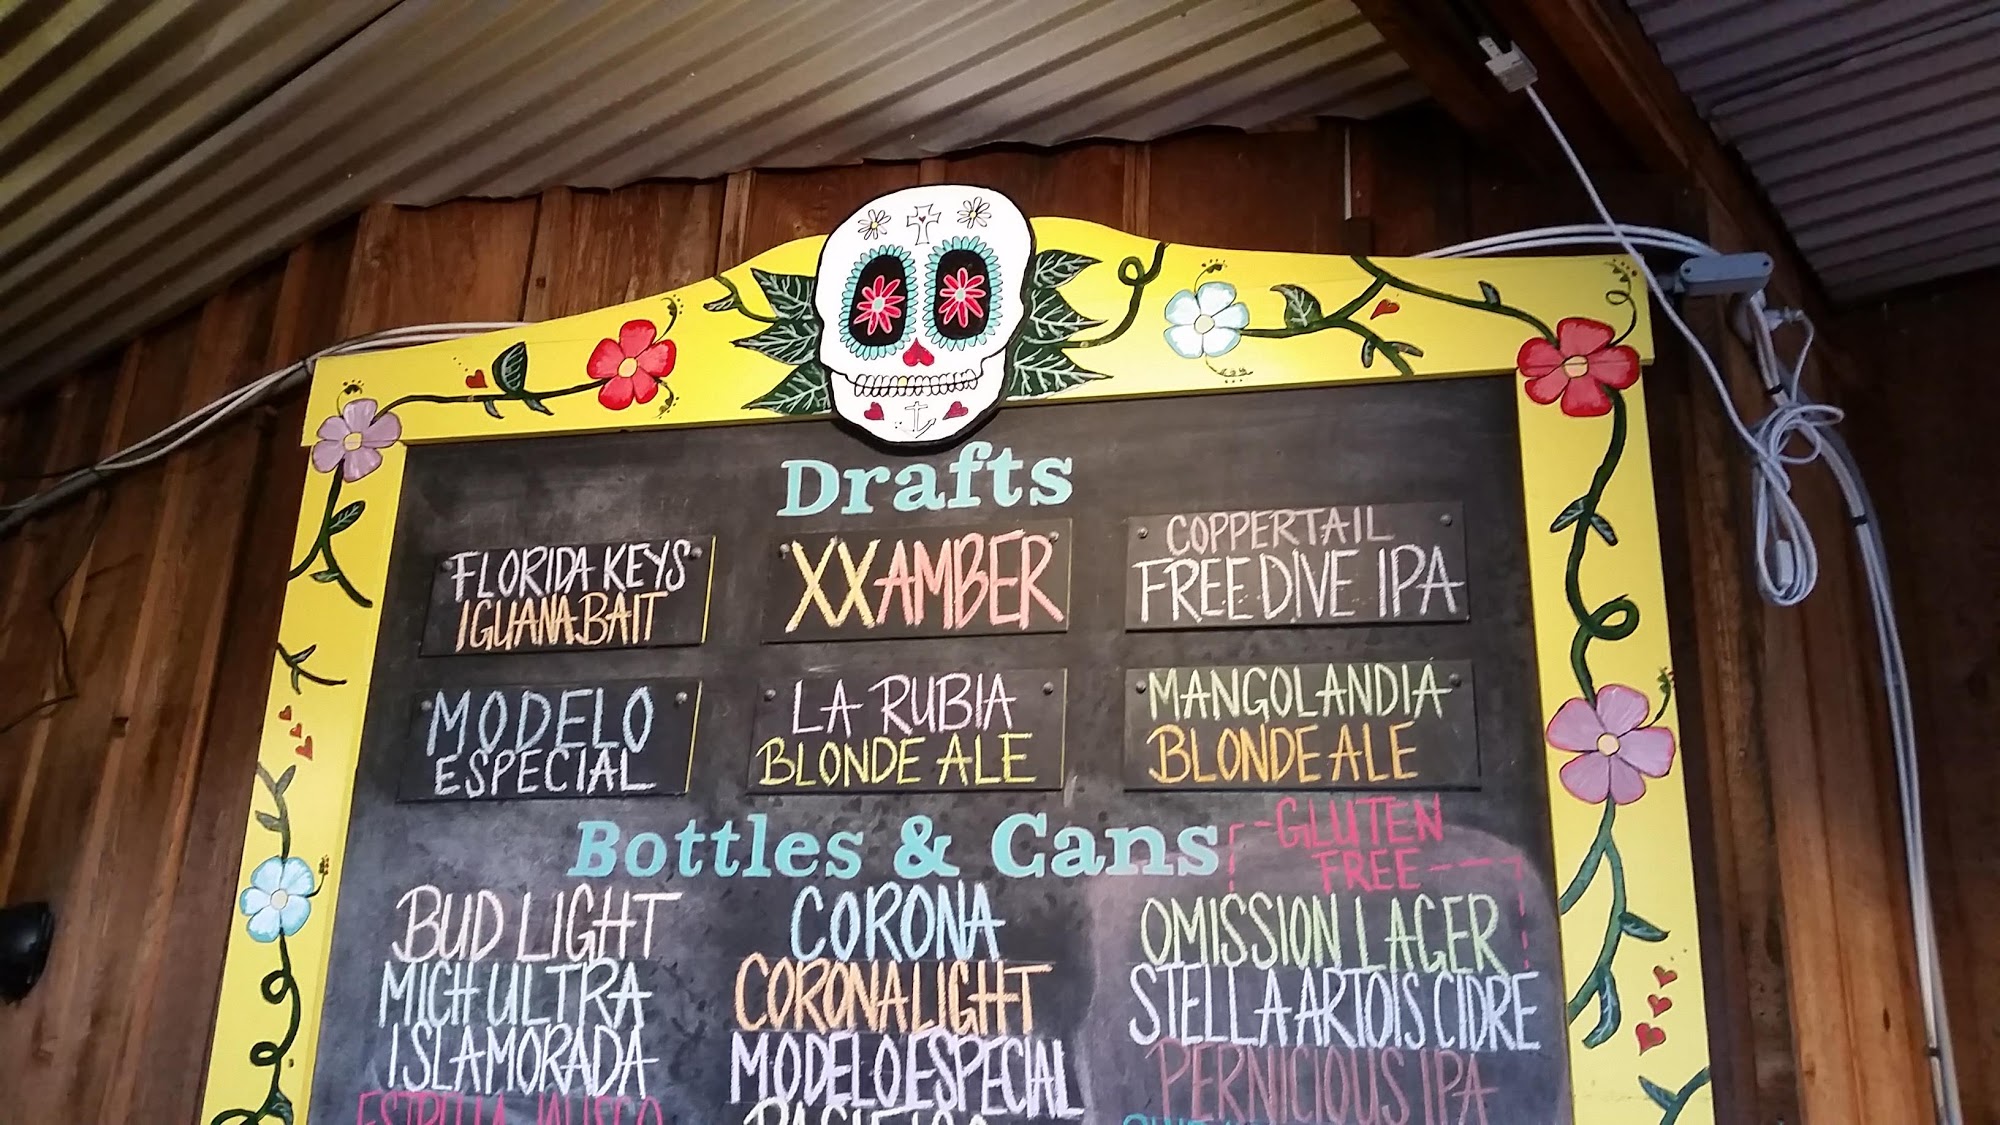 Drafts
FLORIDA KEYS
IGUANA BAIT
XX AMBER
COPPERTAIL
FREE DIVE IPA
MODELO
ESPECIAL
LA RUBIA
BLONDE ALE
MANGOLANDIA
BLONDE ALE
Bottles & Cans
GLUTEN
FREE
BUD LIGHT
MICH ULTRA
ISLAMORADA
ESTRELLA JALISCO
CORONA
CORONA LIGHT
MODELO ESPECIAL
PACIFICO
OMISSION LAGER
STELLA ARTOIS CIDRE
PERNICIOUS IPA